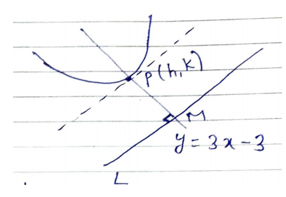 P(h,k)
M
y = 3x-3
L